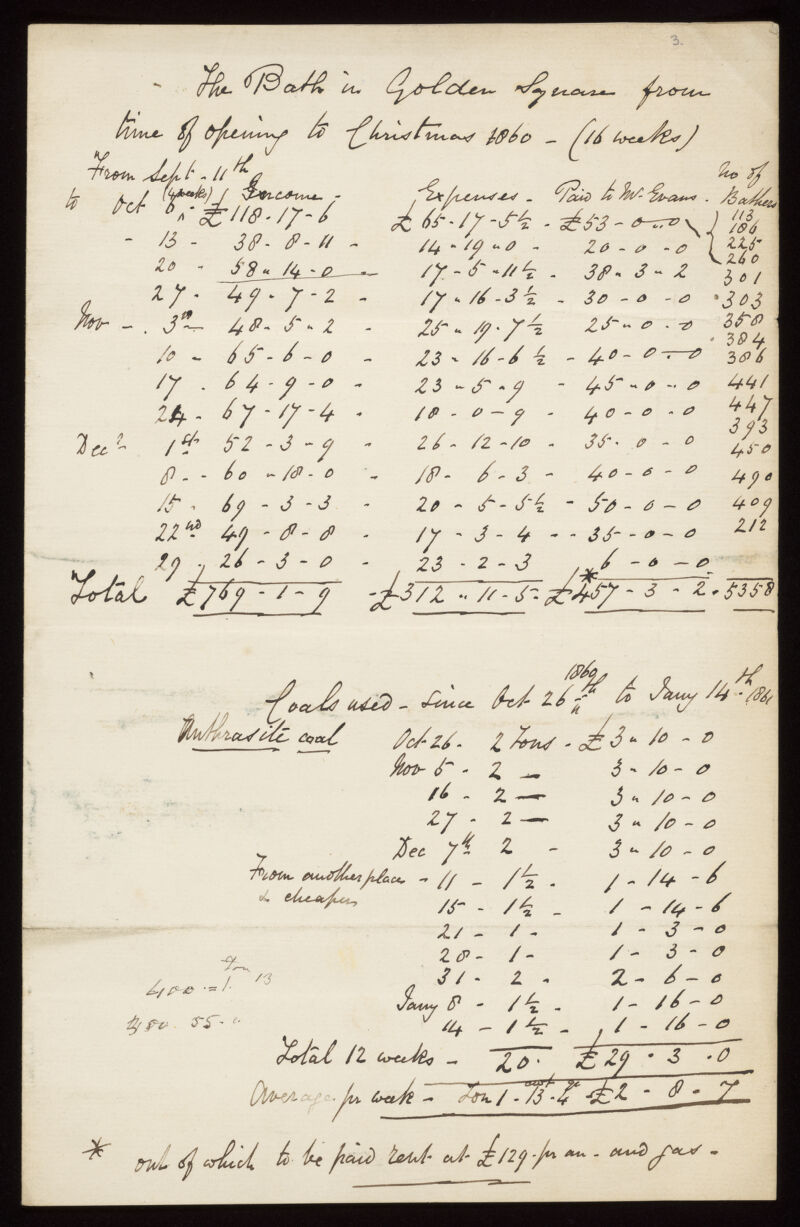 3.
The Bath in Golden Square from
time of opening to Christmas 1860 - (16 weeks)
From Sept - 11th
to Oct 6 (4 weeks) Income - £118-17-6 Expenses - £65-17-5½ - Paid to Mr Evans - £53-0-0 No of Bathers 113 186 225 260
" 13 - 38-8-11 - 14-19-0 - 20-0-0 301
20 - 58-14-0 - 17-5-11½ - 38-3-2 303
27 - 49-7-2 - 17-16-3½ - 30-0-0 358
Nov - 3rd - 48-5-2 - 25-19-7½ 25-0-0 384
10 - 65-6-0 - 23-16-6½ - 40-0-0 386
17 - 64-9-0 - 23-5-9 - 45-0-0 441
24 - 67-17-4 - 18-0-9 - 40-0-0 447
Decr 1st 52-3-9 - 26-12-10 - 35-0-0 393
8 - 60-18-0 - 18-6-3 - 40-0-0 450
15 - 69-3-3 - 20-5-5½ - 50-0-0 490
22nd 49-8-8 - 17-3-4 - 35-0-0 409
29 - 26-3-0 - 23-2-3 6-0-0 212
Total £769-1-9 - £312-11-5 - £*457-3-2 - 5358
Coals used - since Oct 26th 1860 to Jany 14th 1861
Anthrasite coal Oct 26 - 2 Tons - £3-10-0
Nov 5 - 2 - 3-10-0
16 - 2 - 3-10-0
27 - 2 - 3-10-0
Dec 7th 2 - 3-10-0
From another place & cheaper - 11 - 1½ - 1-14-6
15 - 1½ - 1-14-6
21 - 1 - 1-3-0
28 - 1 - 1-3-0
31 - 2 - 2-6-0
Jany 8 - 1½ - 1-16-0
14 - 1½ - 1-16-0
Total 12 weeks - 20 - £29-3-0
Average pr week - Ton 1-cwt 13-qr 4 - £2-8-7
* out of which to be paid rent at £129 pr an - and gas -